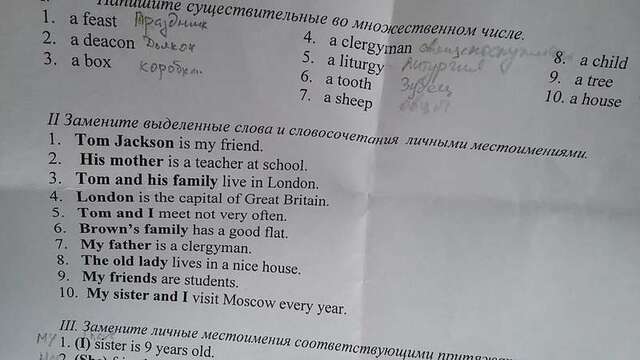 существительные во множественном числе.
1. a feast Праздник
2. a deacon Дьякон
3. a box коробка
4. a clergyman
5. a liturgy
6. a tooth
7. a sheep
8. a child
9. a tree
10. a house
II Замените выделенные слова и словосочетания личными местоимениями.
1. Tom Jackson is my friend.
2. His mother is a teacher at school.
3. Tom and his family live in London.
4. London is the capital of Great Britain.
5. Tom and I meet not very often.
6. Brown's family has a good flat.
7. My father is a clergyman.
8. The old lady lives in a nice house.
9. My friends are students.
10. My sister and I visit Moscow every year.
III. Замените личные местоимения соответствующими
1. (I) sister is 9 years old.